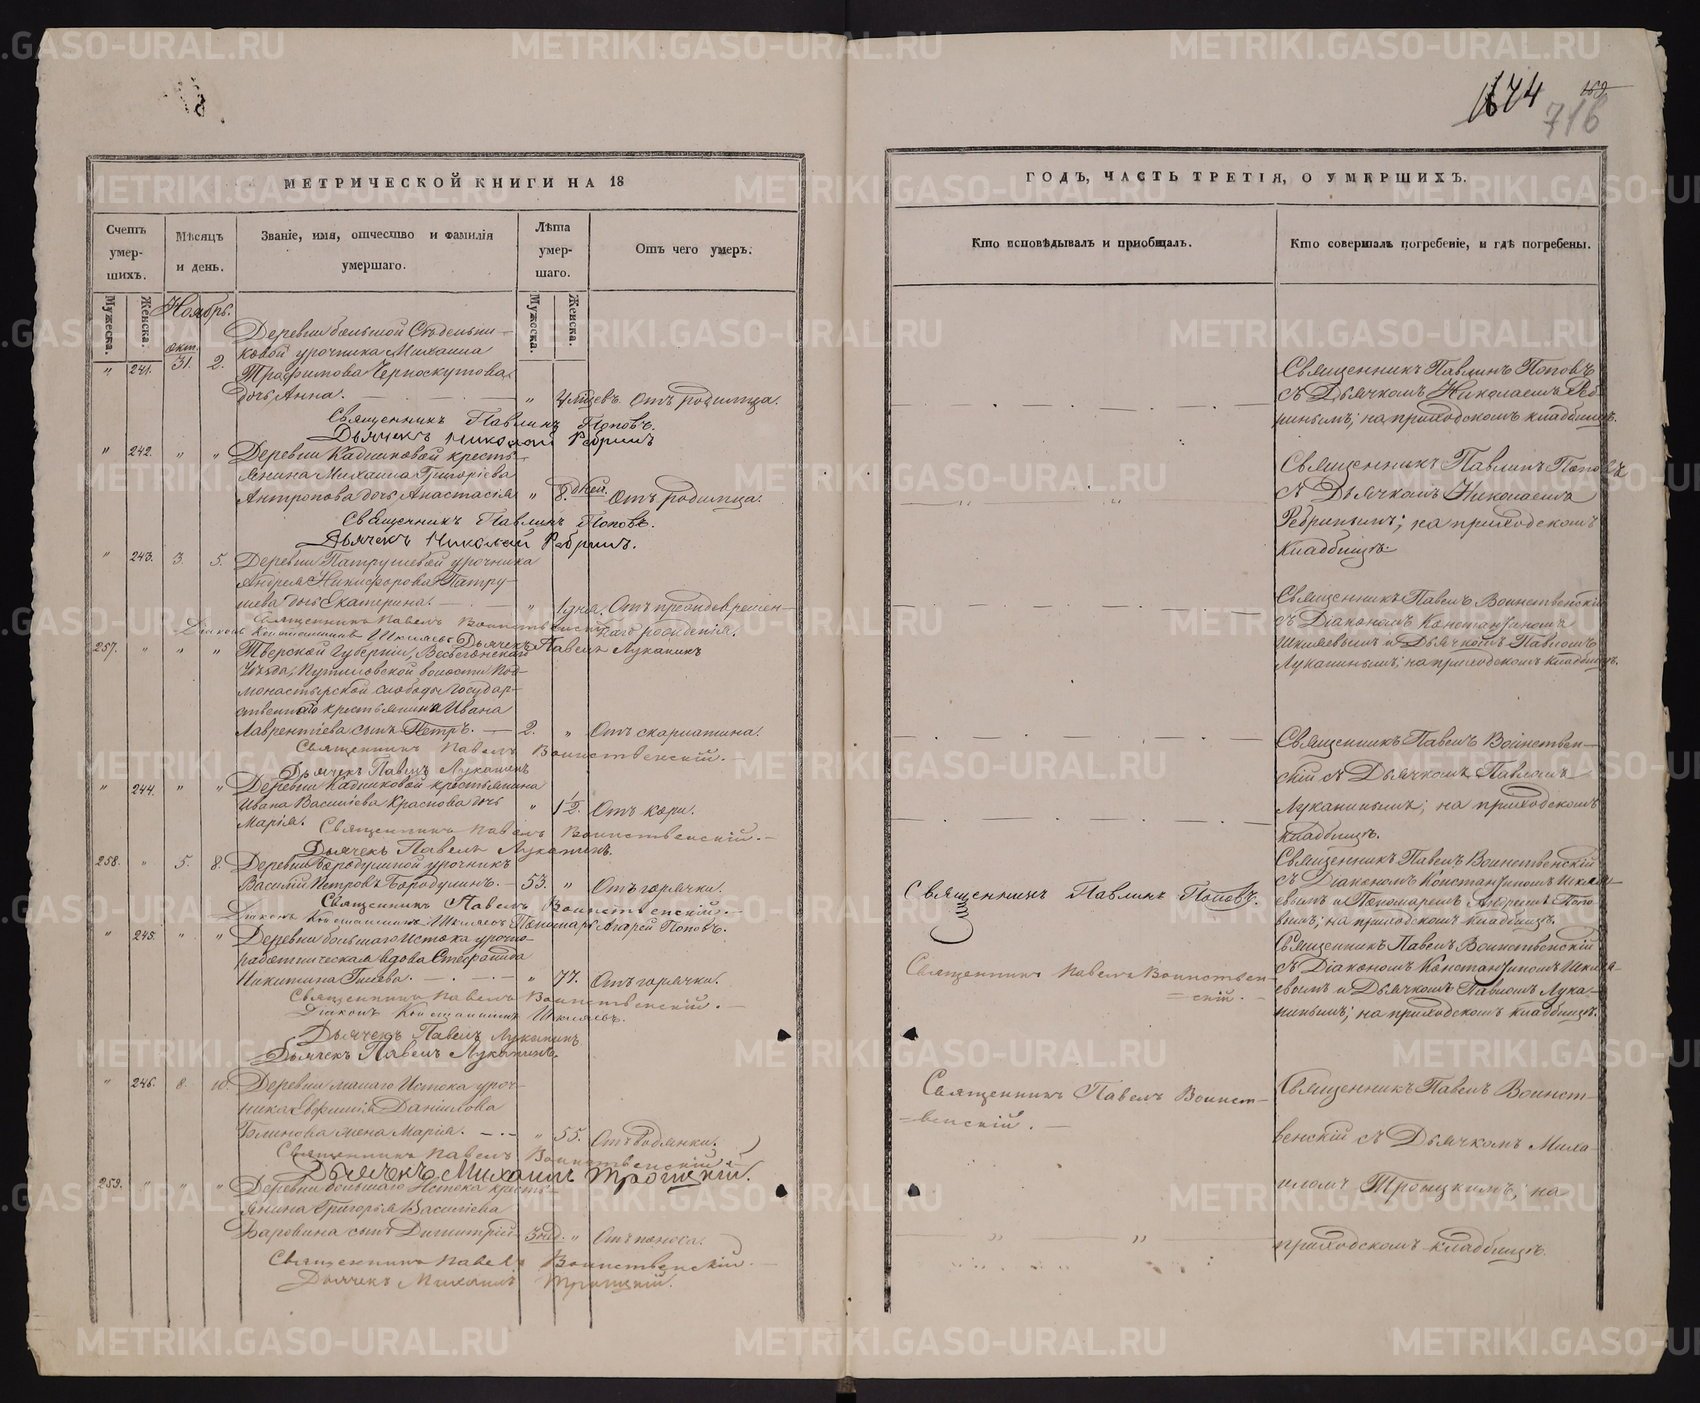 1674
169
716
МЕТРИЧЕСКОЙ КНИГИ НА 18
Счетъ умершихъ.
Мѣсяцъ и день.
Званіе, имя, отчество и фамилія умершаго.
Лѣта умершаго.
Отъ чего умеръ.
Мужеска. Женска.
Мужеска. Женска.
Ноябрь.
окт.
„ 241. 31. 2. Деревни большой Сѣдельни-
ковой урочника Михаила
Трофимова Черноскутова
дочь Анна. „ Отъ родимца.
Священникъ Павлинъ Поповъ.
Дьячекъ Николай Ребринъ
„ 242. „ „ Деревни Кадниковой кресть-
янина Михаила Григорьева
Антропова дочь Анастасія „ 8. дней. Отъ родимца.
Священникъ Павлинъ Поповъ.
Дьячекъ Николай Ребринъ.
„ 243. 3. 5. Деревни Патрушевой урочника
Андрея Никифорова Патру-
шева дочь Екатерина. „ 1 дня. Отъ преждевремен-
наго рожденія.
Священникъ Павелъ Воинственскій
Діаконъ Константинъ Шкляевъ Дьячекъ Павелъ Луканинъ
257. „ „ „ Тверской Губерніи, Весьегонскаго
Уѣзда, Путиловской волости Под-
монастырской слободы Государ-
ственнаго крестьянина Ивана
Лаврентіева сынъ Петръ. 2. „ Отъ скарлатина.
Священникъ Павелъ Воинственскій.
Дьячекъ Павелъ Луканинъ
„ 244. „ „ Деревни Кадниковой крестьянина
Ивана Васильева Краснова дочь
Марія. „ 1 1/2. Отъ кори.
Священникъ Павелъ Воинственскій.
Дьячекъ Павелъ Луканинъ.
258. „ 5. 8. Деревни Бородулиной урочникъ
Василій Петровъ Бородулинъ. 53. „ Отъ горячки.
Священникъ Павелъ Воинственскій.
Діаконъ Константинъ Шкляевъ Пономарь Андрей Поповъ.
„ 245. „ „ Деревни большаго Истока урочно-
работническая вдова Стефанида
Никитина Гилева. „ 77. Отъ горячки.
Священникъ Павелъ Воинственскій.
Діаконъ Константинъ Шкляевъ.
Дьячекъ Павелъ Луканинъ
Дьячекъ Павелъ Луканинъ.
„ 246. 8. 10. Деревни малаго Истока уроч-
ника Евфимія Данилова
Блинова жена Марія. „ 55. Отъ водянки.
Священникъ Павелъ Воинственскій
Дьячекъ Михаилъ Троицкій.
259. „ „ „ Деревни большаго Истока кресть-
янина Григорья Васильева
сынъ Димитрій „ Отъ поноса.
Священникъ Павелъ Воинственскій.
Дьячекъ Михаилъ Троицкій.
ГОДЪ, ЧАСТЬ ТРЕТІЯ, О УМЕРШИХЪ.
Кто исповѣдывалъ и пріобщалъ.
Кто совершалъ погребеніе, и гдѣ погребены.
Священникъ Павлинъ Поповъ
съ Дьячкомъ Николаемъ Реб-
ринымъ; на приходскомъ кладбищѣ.
Священникъ Павлинъ Поповъ
съ Дьячкомъ Николаемъ
Ребринымъ; на приходскомъ
кладбищѣ.
Священникъ Павелъ Воинственскій
съ Діакономъ Константиномъ
Шкляевымъ и Дьячкомъ Павломъ
Луканинымъ; на приходскомъ кладбищѣ.
Священникъ Павелъ Воинствен-
скій съ Дьячкомъ Павломъ
Луканинымъ; на приходскомъ
кладбищѣ.
Священникъ Павлинъ Поповъ.
Священникъ Павелъ Воинственскій
съ Діакономъ Константиномъ Шкля-
евымъ и Пономаремъ Андреемъ Попо-
вымъ; на приходскомъ кладбищѣ.
Священникъ Павелъ Воинствен-
скій.
Священникъ Павелъ Воинственскій
съ Діакономъ Константиномъ Шкля-
евымъ и Дьячкомъ Павломъ Лука-
нинымъ; на приходскомъ кладбищѣ.
Священникъ Павелъ Воинст-
венскій.
Священникъ Павелъ Воинст-
венскій съ Дьячкомъ Миха-
иломъ Троицкимъ; на
приходскомъ кладбищѣ.
METRIKI.GASO-URAL.RU